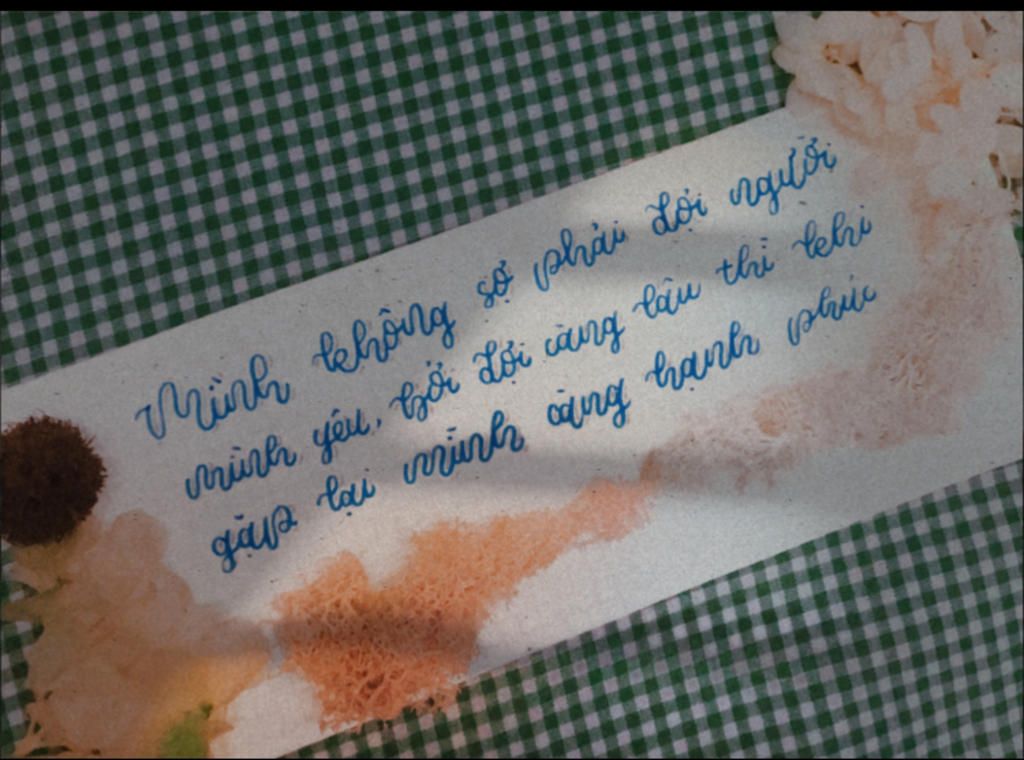 Mình không sợ phải đợi người
mình yêu, bởi đợi càng lâu thì khi
gặp lại mình càng hạnh phúc